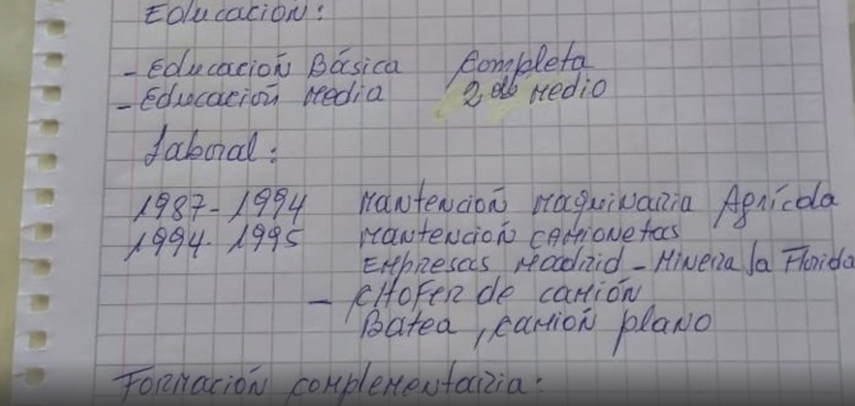 Educación:
- Educación Básica Completa
- Educación Media 2do Medio
Laboral:
1987-1994 Mantención Maquinaria Agrícola
1994-1995 Mantención camionetas
Empresas Madrid - Minera la Florida
- Chofer de camión
Batea, camión plano
Formación complementaria: